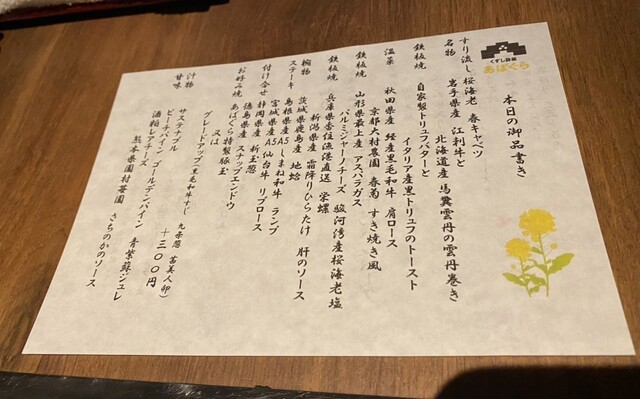 くずし鉄板
あばぐら
本日の御品書き
すり流し 桜海老 春キャベツ
名物 岩手県産 江刺牛と
北海道産 馬糞雲丹の雲丹巻き
鉄板焼 自家製トリュフバターと
イタリア産黒トリュフのトースト
温菜 秋田県産 経産黒毛和牛 肩ロース
京都大村農園 春菊 すき焼き風
鉄板焼 山形県最上産 アスパラガス
パルミジャーノチーズ 駿河湾産桜海老塩
鉄板焼 兵庫県香住漁港直送 栄螺
新潟県産 霜降りひらたけ 肝のソース
椀物 茨城県鹿島産 地蛤
ステーキ 島根県産A5しまね和牛 ランプ
宮城県産A5仙台牛 リブロース
付け合せ 静岡県産 新玉葱
徳島県産 スナップエンドウ
お好み焼 あばぐら特製豚玉
又は
グレードアップ(黒毛和牛すじ 九条葱 苗美人卵)
+三〇〇円
汁物
甘味 サステナブル
ピーチパイン ゴールデンパイン 青紫蘇ジュレ
酒粕レアチーズ
熊本県園村苺園 さちのかのソース